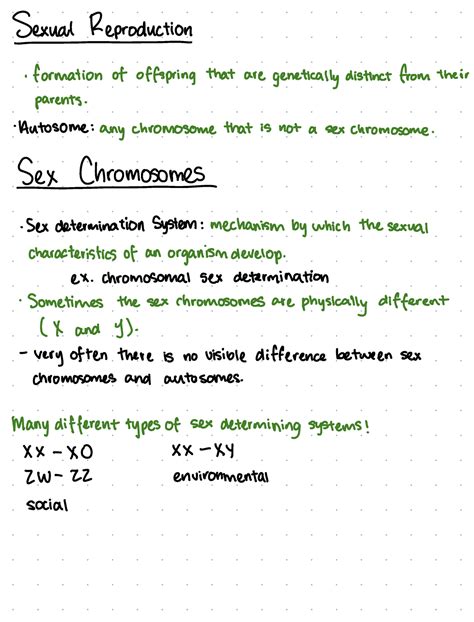 Sexual Reproduction
· formation of offspring that are genetically distinct from their
parents.
· Autosome: any chromosome that is not a sex chromosome.
Sex Chromosomes
· Sex determination System: mechanism by which the sexual
characteristics of an organism develop.
ex. chromosomal sex determination
· Sometimes the sex chromosomes are physically different
(X and Y).
- very often there is no visible difference between sex
chromosomes and autosomes.
Many different types of sex determining systems!
XX - XO XX - XY
ZW - ZZ environmental
social